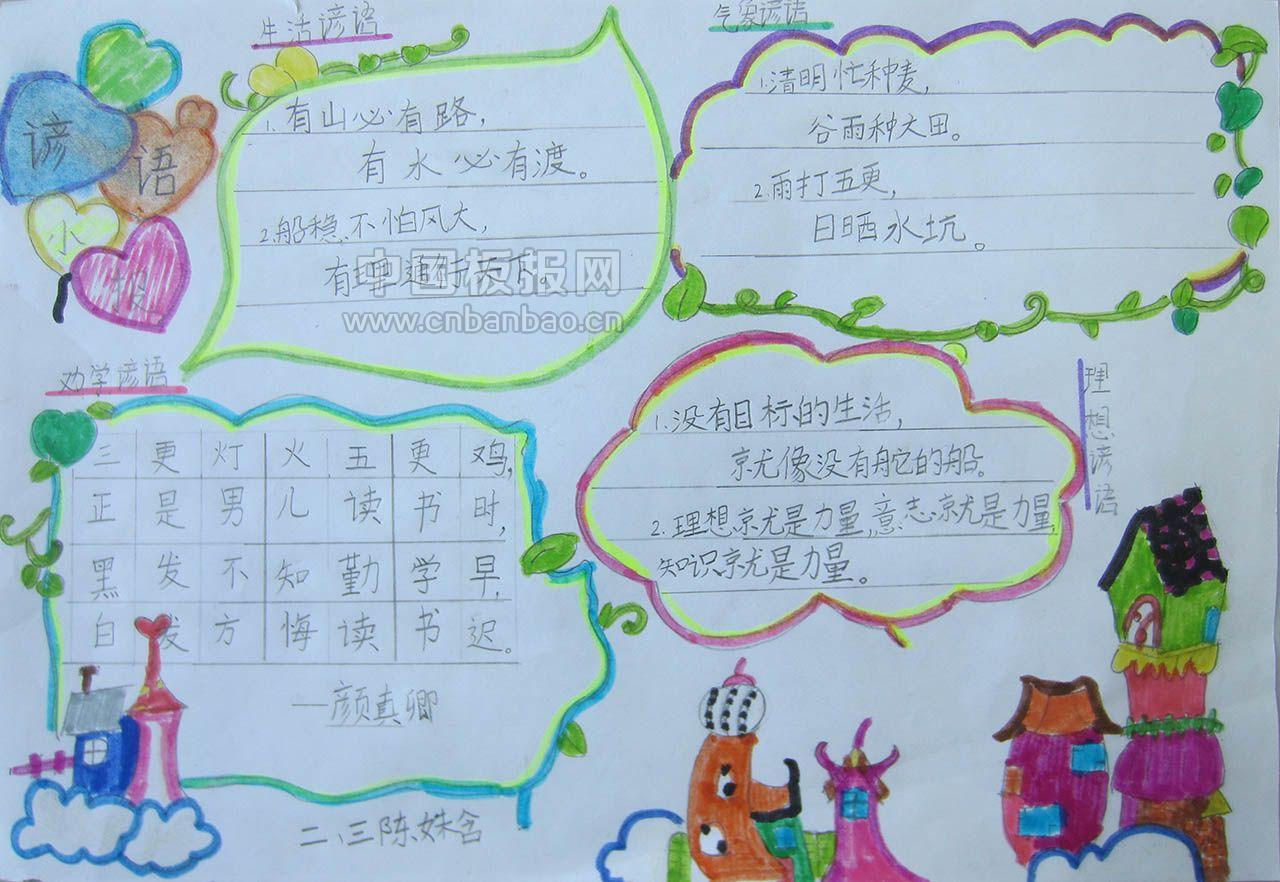 谚
语
小
报
生活谚语
1.有山必有路，
有水必有渡。
2.船稳不怕风大，
有理通行天下。
中国板报网
www.cnbanbao.cn
气象谚语
1.清明忙种麦，
谷雨种大田。
2.雨打五更，
日晒水坑。
劝学谚语
三更灯火五更鸡，
正是男儿读书时，
黑发不知勤学早，
白发方悔读书迟。
—颜真卿
理想谚语
1.没有目标的生活，
就像没有舵的船。
2.理想就是力量，意志就是力量，
知识就是力量。
二、三陈姝含